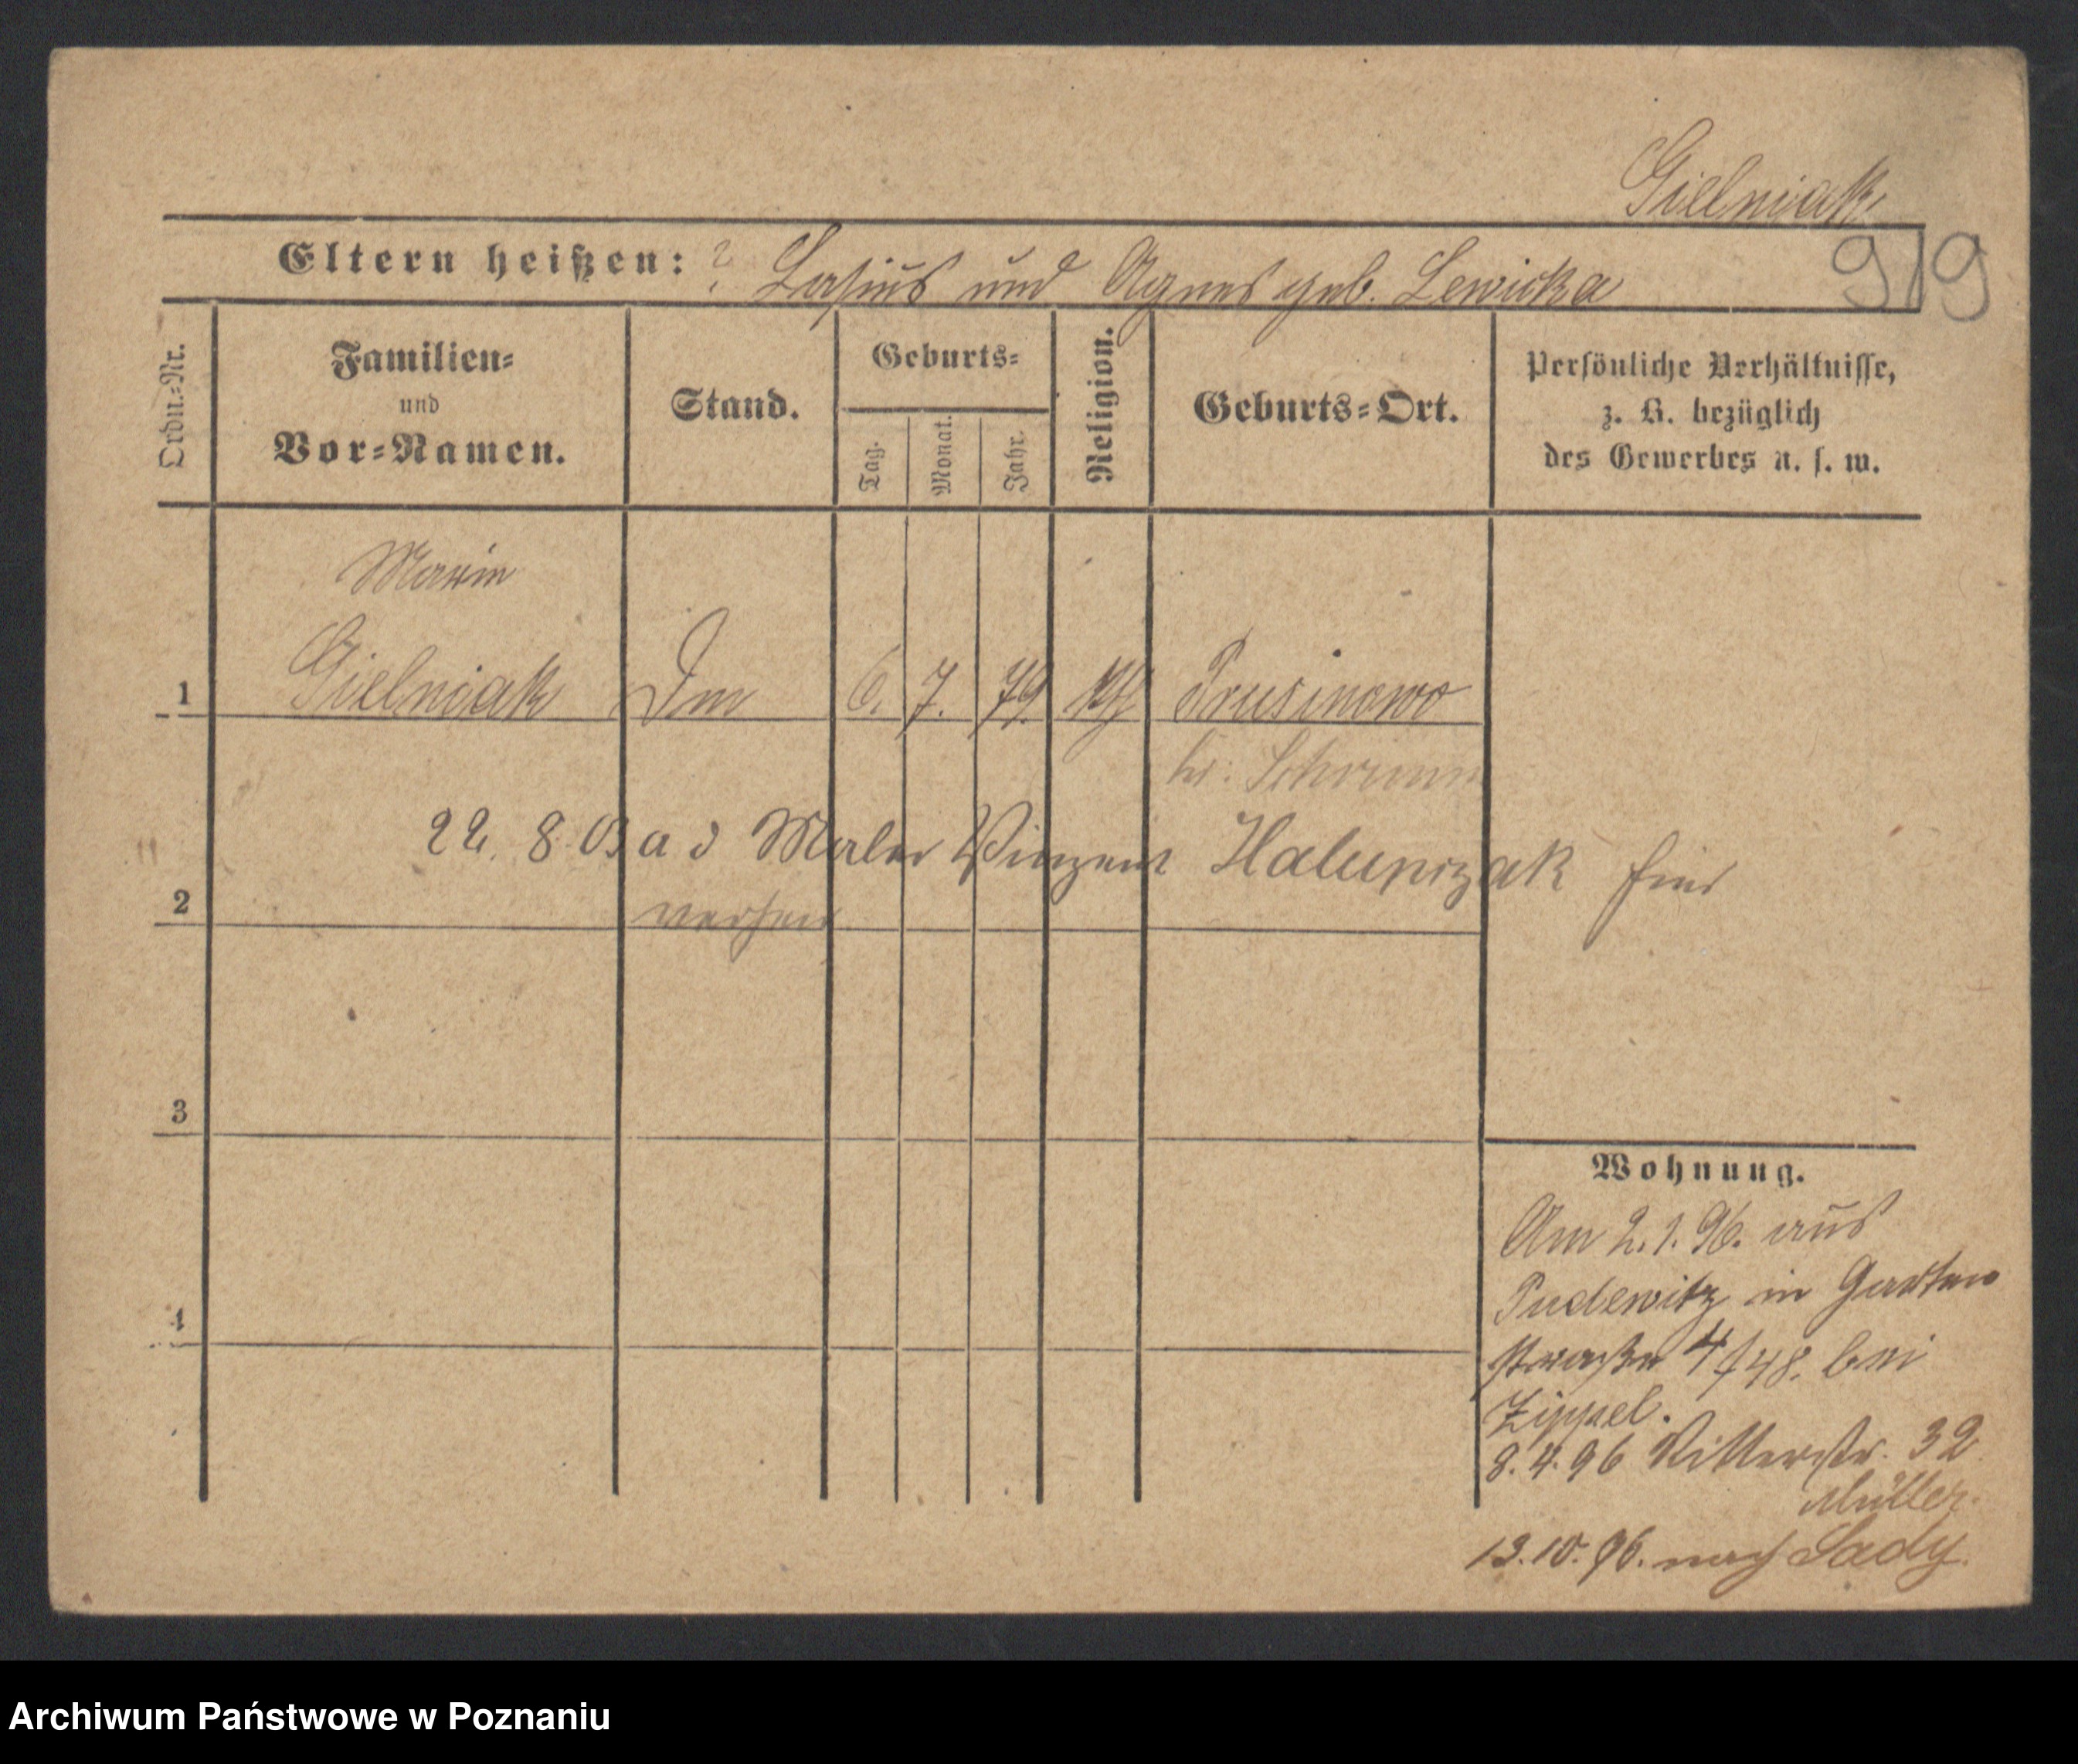 Gielniak
Eltern heißen: ? Casius und Agnes geb. Lewicka
919
Ordn.=Nr.
Familien=
und
Vor=Namen.
Stand.
Geburts=
Tag.
Monat.
Jahr.
Religion.
Geburts=Ort.
Persönliche Verhältnisse,
z. B. bezüglich
des Gewerbes u. s. w.
Marie
1 Gielniak Dm 6. 7. 79. kth Prusinowo
Kr. Schrimm
22. 8. 03 a d Maler Vinzent Halupczak hier
2
3
4
Wohnung.
Am 2.1.96. aus
Pudewitz in Garten
straße 4/48. bei
Zippel.
8.4.96 Ritterstr. 32
Müller.
13.10.96. nach Sady.
Archiwum Państwowe w Poznaniu